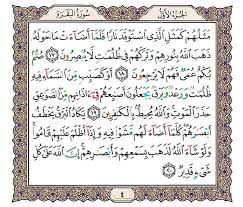 الجُزءُ الأَوَّلُ سُورَةُ البَقَرَةِ
مَثَلُهُمْ كَمَثَلِ ٱلَّذِى ٱسْتَوْقَدَ نَارًا فَلَمَّآ أَضَآءَتْ مَا حَوْلَهُۥ
ذَهَبَ ٱللَّهُ بِنُورِهِمْ وَتَرَكَهُمْ فِى ظُلُمَٰتٍ لَّا يُبْصِرُونَ ١٧ صُمٌّۢ
بُكْمٌ عُمْىٌ فَهُمْ لَا يَرْجِعُونَ ١٨ أَوْ كَصَيِّبٍ مِّنَ ٱلسَّمَآءِ فِيهِ
ظُلُمَٰتٌ وَرَعْدٌ وَبَرْقٌ يَجْعَلُونَ أَصَٰبِعَهُمْ فِىٓ ءَاذَانِهِم مِّنَ ٱلصَّوَٰعِقِ
حَذَرَ ٱلْمَوْتِ وَٱللَّهُ مُحِيطٌۢ بِٱلْكَٰفِرِينَ ١٩ يَكَادُ ٱلْبَرْقُ يَخْطَفُ
أَبْصَٰرَهُمْ كُلَّمَآ أَضَآءَ لَهُم مَّشَوْا۟ فِيهِ وَإِذَآ أَظْلَمَ عَلَيْهِمْ قَامُوا۟
وَلَوْ شَآءَ ٱللَّهُ لَذَهَبَ بِسَمْعِهِمْ وَأَبْصَٰرِهِمْ إِنَّ ٱللَّهَ عَلَىٰ كُلِّ
شَىْءٍ قَدِيرٌ ٢٠
٤